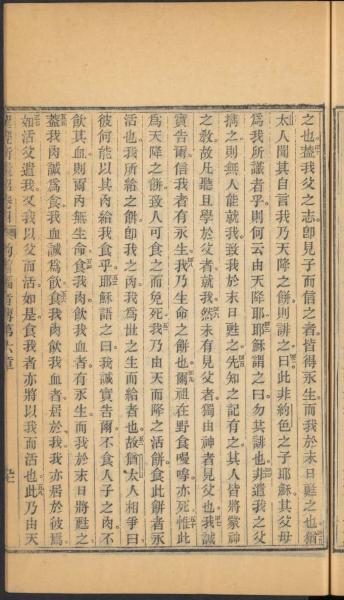 之也蓋我父之志卽見子而信之者皆得永生而我於末日甦之也猶
太人聞其自言我乃天降之餅則誹之曰此非約色之子耶穌其父母
爲我所識者乎則何云由天降耶耶穌謂之曰勿其誹也非遣我之父
攜之則無人能就我致我於末日甦之先知之記有之其人皆將蒙神
之敎故凡聽且學於父者就我然未有見父者獨由神者見父也我誠
實告爾信我者有永生我乃生命之餅也爾祖在野食嗎嗱亦死惟此
爲天降之餅致人可食之而免死我乃由天而降之活餅食此餅者永
活也我所給之餅卽我之肉我爲世之生而給者也故猶太人相爭曰
彼何能以其肉給我食乎耶穌語之曰我誠實告爾不食人子之肉不
飮其血則爾內無生命食我肉飮我血者有永生而我於末日將甦之
蓋我肉誠爲食我血誠爲飮食我肉飮我血者居於我我亦居於彼爲
如活父遣我又我以父而活如是食我者亦將以我而活也此乃由天
約翰福音傳第六章